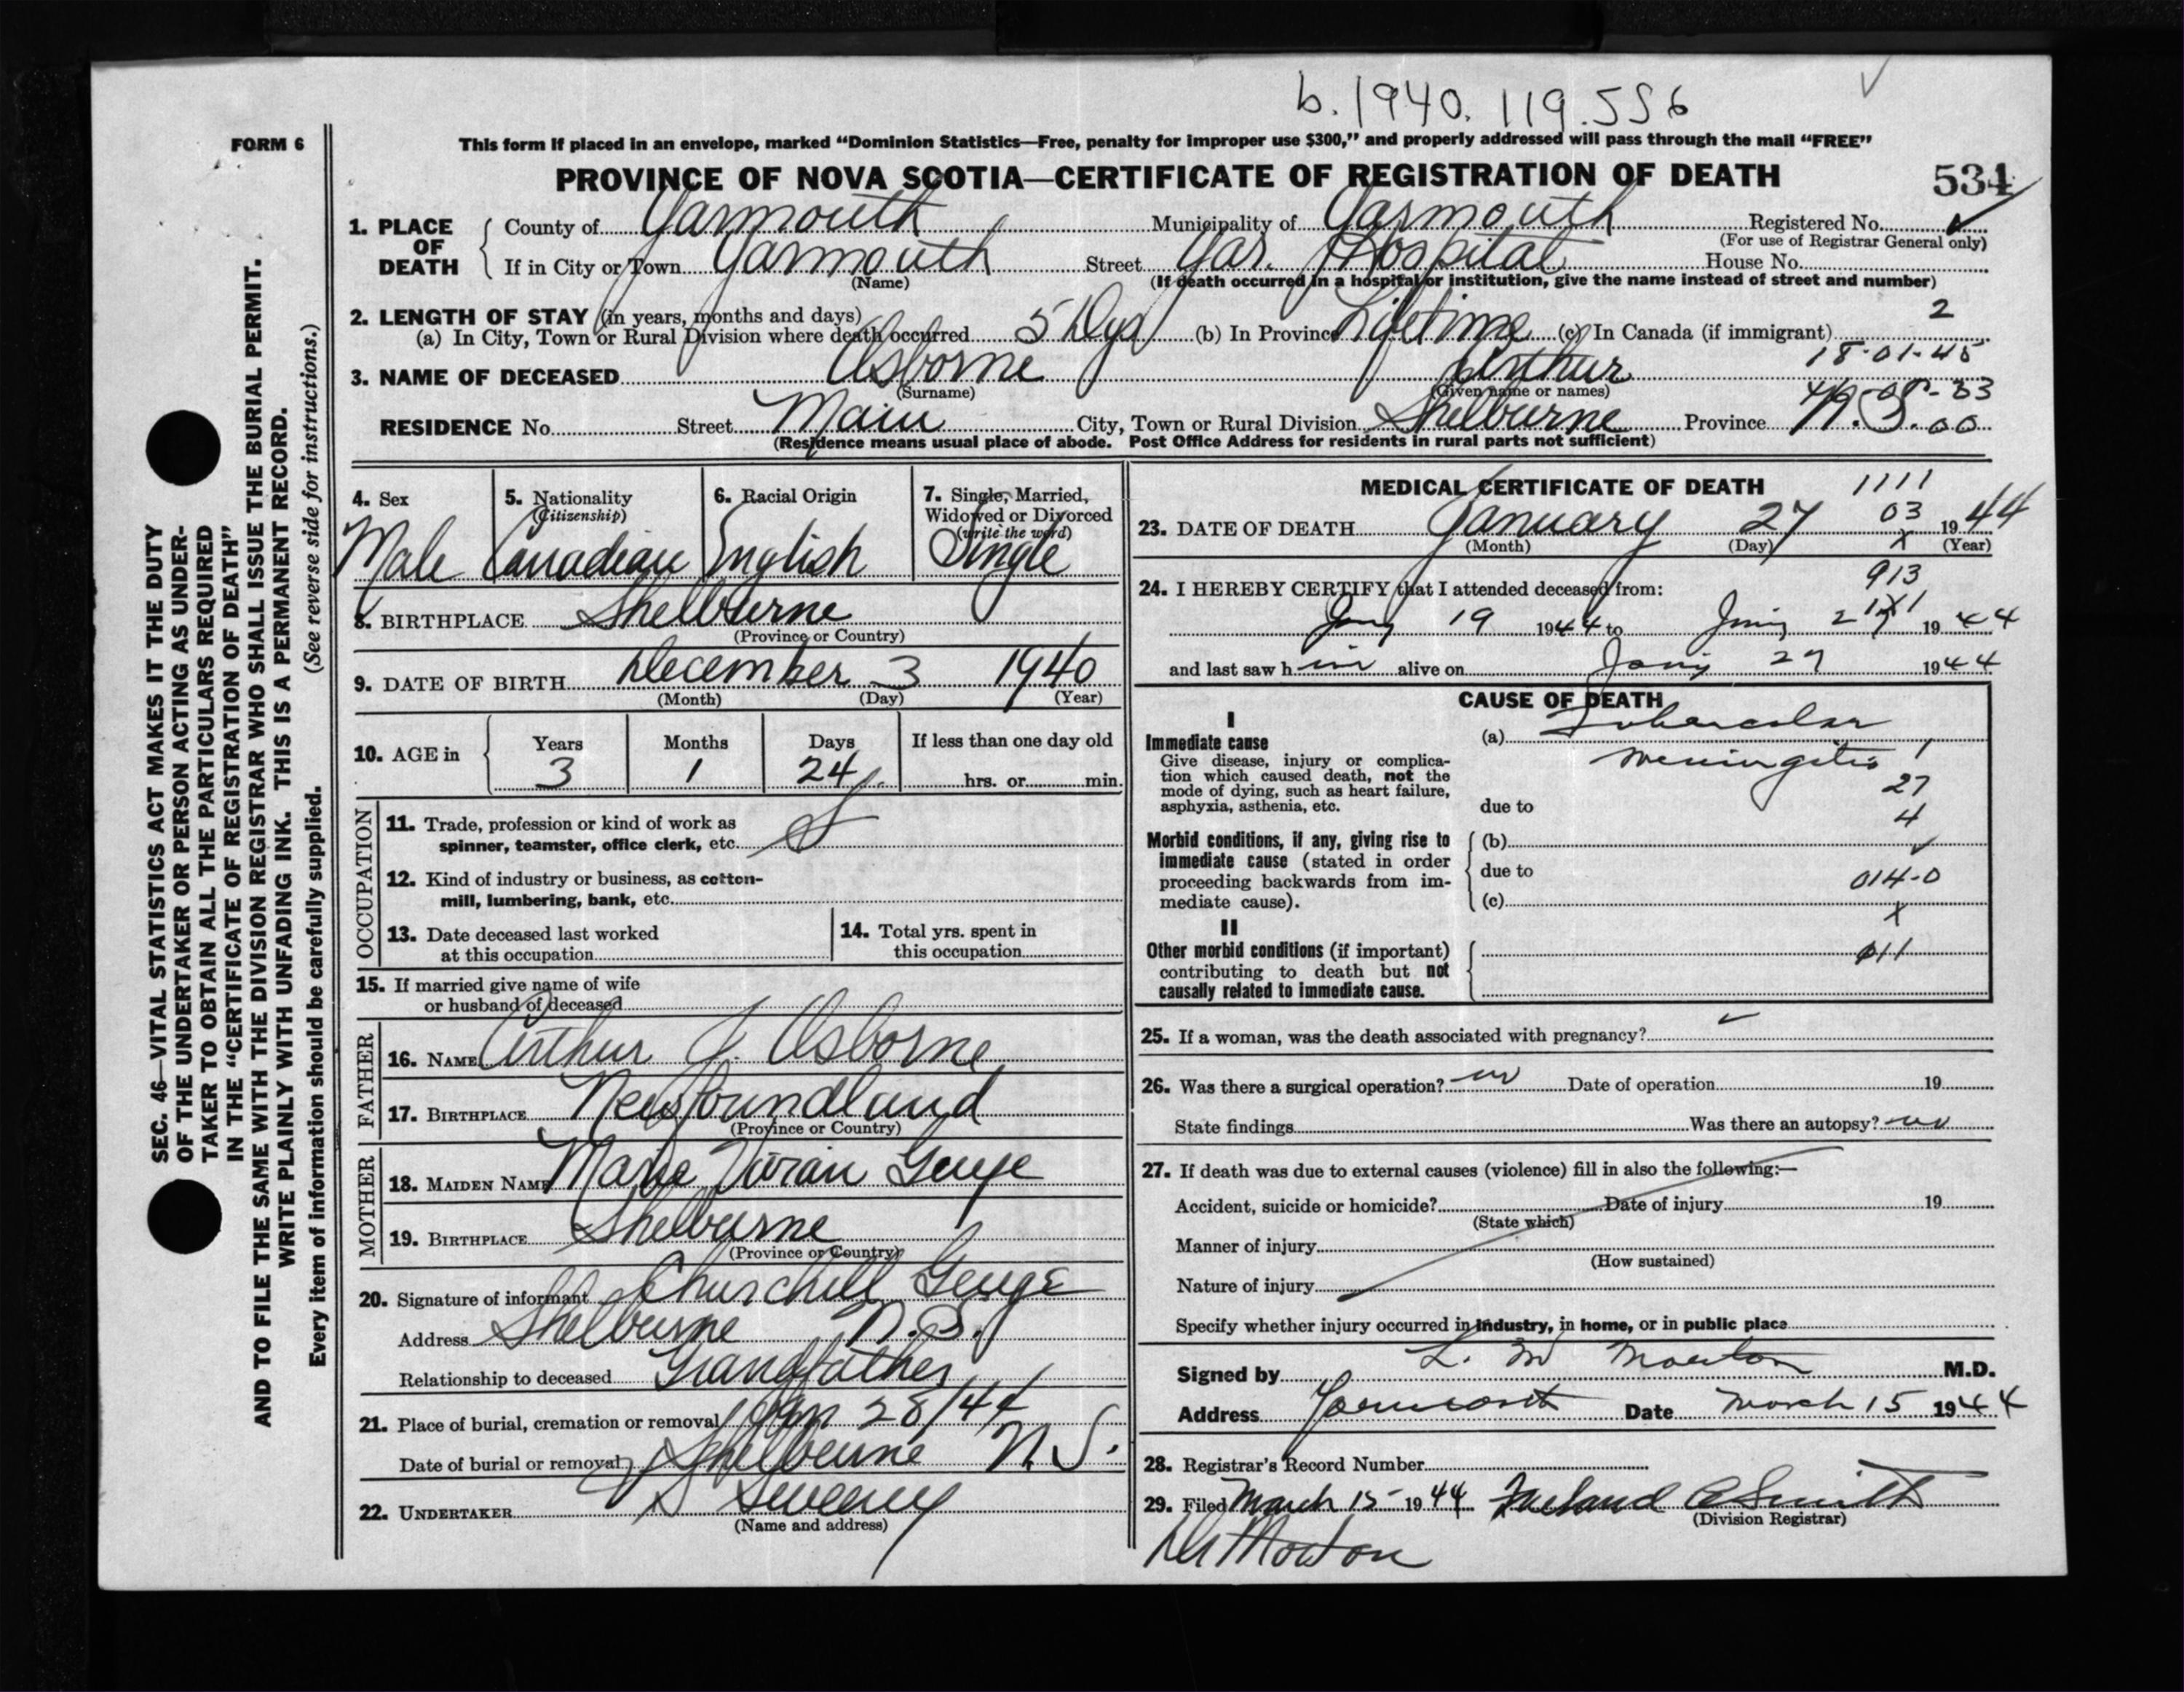 b. 1940. 119.556
FORM 6
This form if placed in an envelope, marked "Dominion Statistics—Free, penalty for improper use $300," and properly addressed will pass through the mail "FREE"
PROVINCE OF NOVA SCOTIA—CERTIFICATE OF REGISTRATION OF DEATH 534
1. PLACE OF DEATH County of Yarmouth Municipality of Yarmouth Registered No.
(For use of Registrar General only)
If in City or Town Yarmouth Street Yar. Hospital House No.
(Name) (If death occurred in a hospital or institution, give the name instead of street and number)
2. LENGTH OF STAY (in years, months and days) 2
(a) In City, Town or Rural Division where death occurred 5 Dys (b) In Province Lifetime (c) In Canada (if immigrant)
18-01-45
3. NAME OF DECEASED Osborne Arthur
(Surname) (Given name or names)
RESIDENCE No. Street Main City, Town or Rural Division Shelburne Province N.S. 00
(Residence means usual place of abode. Post Office Address for residents in rural parts not sufficient)
4. Sex 5. Nationality 6. Racial Origin 7. Single, Married,
(Citizenship) Widowed or Divorced
(write the word)
Male Canadian English Single
8. BIRTHPLACE Shelburne
(Province or Country)
9. DATE OF BIRTH December 3 1940
(Month) (Day) (Year)
10. AGE in Years Months Days If less than one day old
3 1 24 hrs. or min.
OCCUPATION
11. Trade, profession or kind of work as
spinner, teamster, office clerk, etc.
12. Kind of industry or business, as cotton-
mill, lumbering, bank, etc.
13. Date deceased last worked 14. Total yrs. spent in
at this occupation this occupation
15. If married give name of wife
or husband of deceased
FATHER
16. NAME Arthur J. Osborne
17. BIRTHPLACE Newfoundland
(Province or Country)
MOTHER
18. MAIDEN NAME Genge
19. BIRTHPLACE Shelburne
(Province or Country)
20. Signature of informant Churchill Genge
Address Shelburne N.S.
Relationship to deceased Grandfather
21. Place of burial, cremation or removal Jan 28/44
Date of burial or removal Shelburne N.S.
22. UNDERTAKER Sweeny
(Name and address)
MEDICAL CERTIFICATE OF DEATH 1111
03
23. DATE OF DEATH January 27 1944
(Month) (Day) (Year)
913
24. I HEREBY CERTIFY that I attended deceased from:
Jany 19 1944 to Jany 27 1944
and last saw him alive on Jany 27 1944
CAUSE OF DEATH
I
Immediate cause (a) Tubercular
Give disease, injury or complica- meningitis 1
tion which caused death, not the
mode of dying, such as heart failure, 27
asphyxia, asthenia, etc. due to 4
Morbid conditions, if any, giving rise to (b)
immediate cause (stated in order due to
proceeding backwards from im- 014-0
mediate cause). (c)
x
II
Other morbid conditions (if important) 011
contributing to death but not
causally related to immediate cause.
25. If a woman, was the death associated with pregnancy?
26. Was there a surgical operation? no Date of operation 19
State findings Was there an autopsy? no
27. If death was due to external causes (violence) fill in also the following:—
Accident, suicide or homicide? Date of injury 19
(State which)
Manner of injury
(How sustained)
Nature of injury
Specify whether injury occurred in industry, in home, or in public place
Signed by L. M Morton M.D.
Address Yarmouth Date March 15 1944
28. Registrar's Record Number
29. Filed March 15 1944 Smith
(Division Registrar)
Morton
SEC. 46—VITAL STATISTICS ACT MAKES IT THE DUTY
OF THE UNDERTAKER OR PERSON ACTING AS UNDER-
TAKER TO OBTAIN ALL THE PARTICULARS REQUIRED
IN THE "CERTIFICATE OF REGISTRATION OF DEATH"
AND TO FILE THE SAME WITH THE DIVISION REGISTRAR WHO SHALL ISSUE THE BURIAL PERMIT.
WRITE PLAINLY WITH UNFADING INK. THIS IS A PERMANENT RECORD.
Every item of information should be carefully supplied. (See reverse side for instructions.)